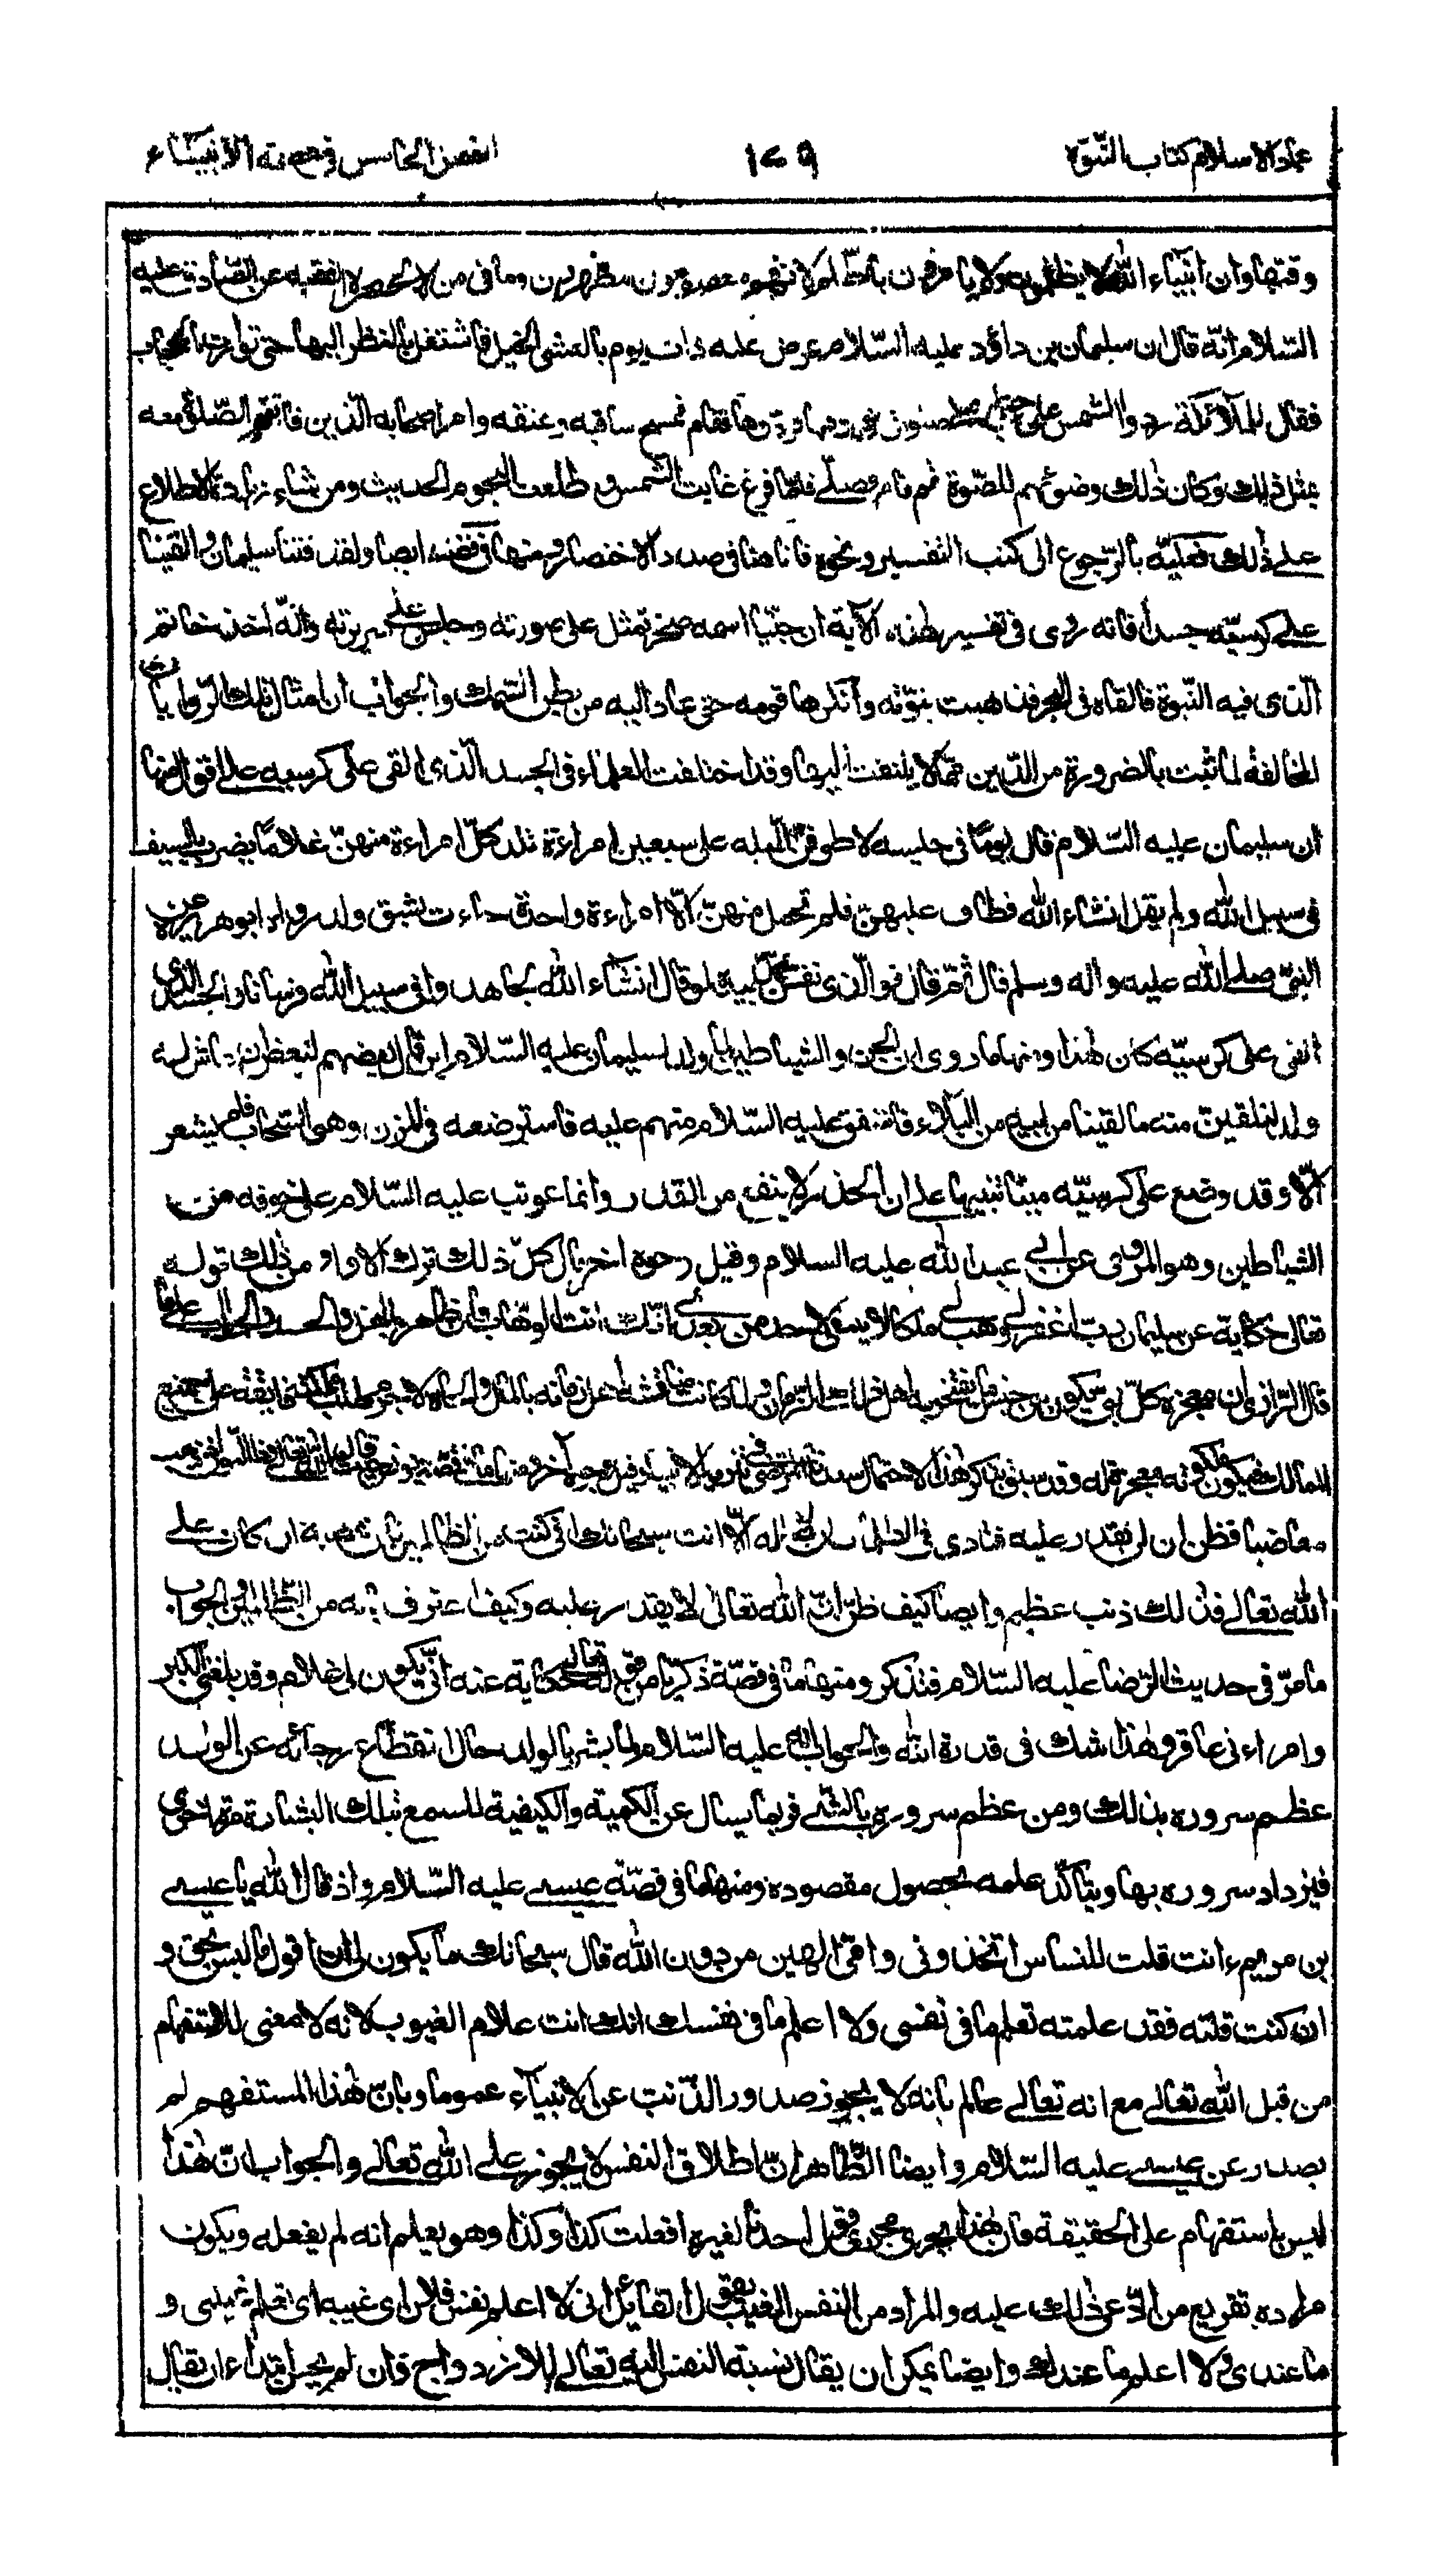 عماد الاسلام كتاب النبوة
١٧٩
الفصل الخامس في عصمة الأنبياء
وقتها وان انبياء الله لا يظلمون ولا يأمرون بالظلم لانهم معصومون مطهرون وما في من لا يحضره الفقيه عن الصادق عليه
السلام انّه قال ان سليمان بن داؤد عليه السّلام عرض عليه ذات يوم بالعشي الخيل فاشتغل بالنظر اليها حتى توارت بالحجاب
فقال للملآئكة ردوا الشمس علي حتى اصلي صلوتي في وقتها فردّوها فقام فمسح ساقيه وعنقه وامر اصحابه الّذين فاتتهم الصّلوة معه
بمثل ذلك وكان ذلك وضوئهم للصّلوة ثم قام فصلّے فلمّا فرغ غابت الشمس وطلعت النجوم الحديث ومن شاء زيادة الاطلاع
علے ذلك فعليه بالرّجوع الى كتب التفسير ونحوه فانا هنا في صدد الاختصار ومنها في قصته ايضا ولقد فتنا سليمان والقينا
علے كرسيّه جسدا فانه روى في تفسير هذه الآية ان جنّيا اسمه صخر تمثل على صورته وجلس علے سريره وانّه اخذ خاتمه
الّذى فيه النّبوة فالقاه فى البحر فذهبت نبوّته وانكرها قومه حتى عاد اليه من بطن السّمك والجواب ان امثال تلك الرّوايات
المخالفة لما ثبت بالضرورة من الدّين ممّا لا يلتفت اليها وقد اختلفت العلماء في الجسد الّذى القى على كرسيه علے اقوال منها
ان سليمان عليه السّلام قال يومًا فى جلسه لاطوفن الليله على سبعين امراءة تلد كلّ امراءة منهنّ غلامًا يضرب بالسيف
فى سبيل الله ولم يقل انشاء الله فطاف عليهنّ فلم تحمل منهنّ الّا امراءة واحدة جاءت بشق ولد رواه ابو هريرة عن
النبيّ صلے الله عليه واله وسلم قال ثمّ قال فو الّذى نفس محمّد بيده لو قال انشاء الله لجاهدوا في سبيل الله فرسانا والجسد الذي
القى على كرسيّه كان هذا ومنها ما روى ان الجن والشياطين لما ولد لسليمان عليه السّلام ابن قال بعضهم لبعض ان عاش له
ولد لنلقينّ منه ما لقينا من ابيه من البلاء فاشفق عليه السّلام منهم عليه فاسترضعه في المزن وهو السّحاب فلم يشعر
الّا وقد وضع على كرسيّه ميتا تنبيها علے ان الحذر لا ينفع من القدر وانما عوتب عليه السّلام على خوفه من
الشياطين وهو المروى عن ابي عبد الله عليه السلام وقيل وجوه اخر مآل كلّ ذلك ترك الاولى ومن ذلك قوله
تعالى حكاية عن سليمان ربّ اغفر لے وهب لے ملكا لا ينبغي لاحد من بعدى انّك انت الوهّاب فان ظاهره البخل والحسد والجواب علے ما
قال الرّازى ان معجزة كلّ نبى تكون من جنس ما يفتخر به اهل ذلك الزّمان ولما كانت منافسة اهل زمانه بالمال والجاه لا جرم طلب مملكة فايقة على جميع
الممالك فيكون ملكه معجزة له
مغاضبا فظن ان لن نقدر عليه فنادى في الظلمات ان لا اله الّا انت سبحانك اني كنت من الظالمين
الله تعالے فذلك ذنب عظيم وايضا كيف ظنّ انّ الله تعالى لا يقدر عليه وكيف اعترف بانه من الظالمين والجواب
ما مرّ في حديث الرّضا عليه السّلام فتذكر ومنها ما فى قصّة ذكريّا من قوله تعالے حكاية عنه انّى يكون لى غلام وقد بلغني الكبر
وامراءتى عاقر وهذا شك فى قدرة الله والجواب انه عليه السّلام لما بشر بالولد حال انقطاع رجائه عن الولد
عظم سروره بذلك ومن عظم سروره بالشّے فربما يسال عن الكمية والكيفية للسمع تلك البشارة مرة اخرى
فيزداد سروره بها ويتأكّد علمه بحصول مقصوده ومنها ما فى قصّة عيسے عليه السّلام واذ قال الله يا عيسے
بن مريم ءانت قلت للناس اتخذونى وامّى الهين من دون الله قال سبحانك ما يكون لى ان اقول ما ليس لى بحق و
ان كنت قلته فقد علمته تعلم ما فى نفسى ولا اعلم ما فى نفسك انك انت علام الغيوب لانه لا معنى للاستفهام
من قبل الله تعالے مع انه تعالے عالم بانه لا يجوز صدور الذّنب عن الانبيآء عموما وبانّ هذا المستفهم لم
يصدر عن عيسے عليه السّلام وايضا الظّاهر انّ اطلاق النفس لا يجوز علے الله تعالے والجواب انّ هذا
ليس باستفهام على الحقيقة فان هذا يجرى مجرى قول احدنا لغيره افعلت كذا وكذا وهو يعلم انه لم يفعله ويكون
مراده تقريع من ادّعى ذلك عليه والمراد من النفس الغيب يقول القائل انى لا اعلم نفس فلان اى غيبه اى تعلم غيبى و
ما عندى ولا اعلم ما عندك وايضا يمكن ان يقال نسبة النفس اليه تعالے للازدواج فان لم يحسن ابتداء ان يقال